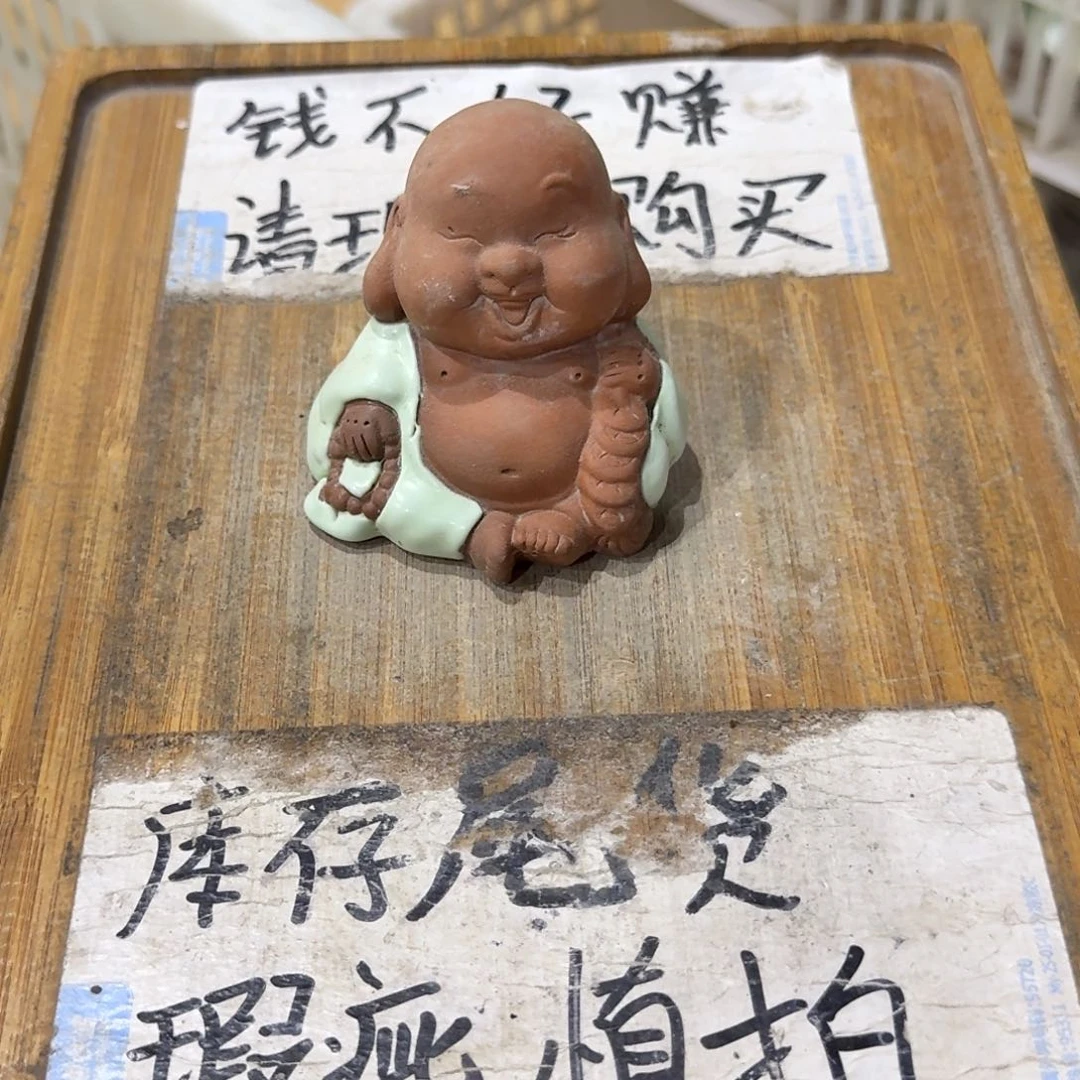 钱不好赚
请理 购买
库存尾货
瑕疵慎拍